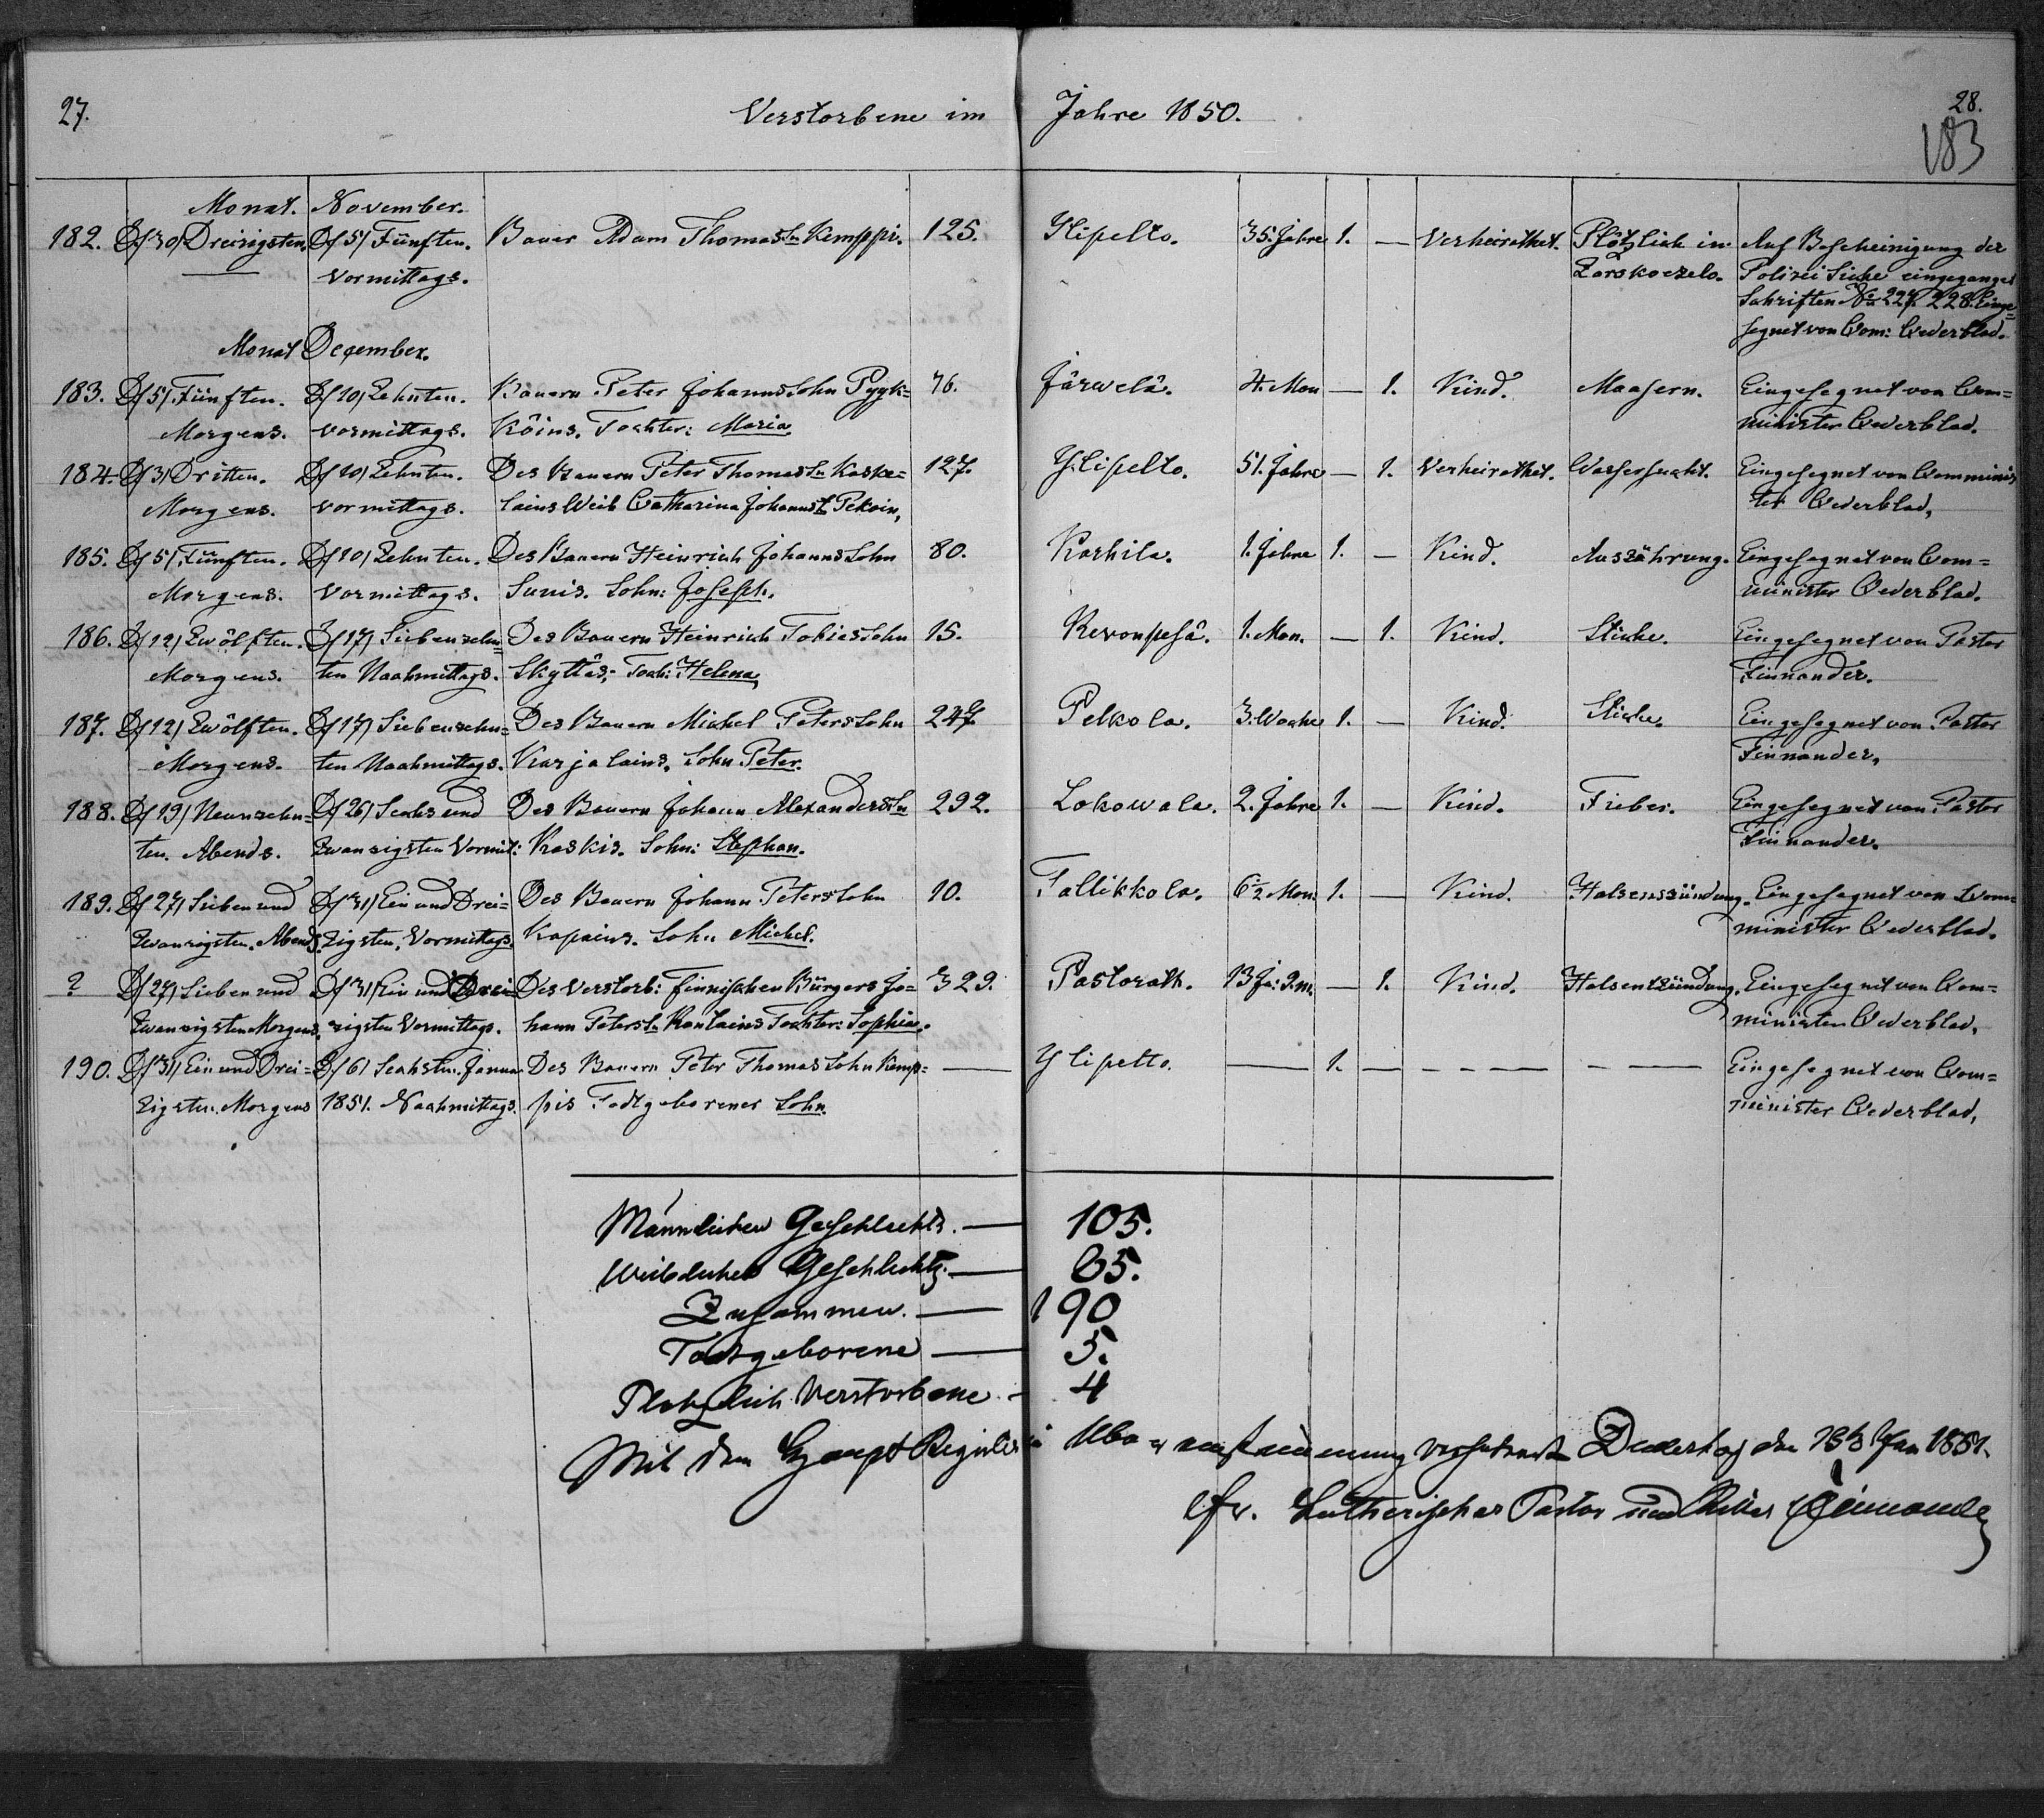 27.
Verstorbene im Jahre 1850.
28.
183
Monat. November.
182. D/30/ Dreisigsten. D/5/ Fünften. Bauer Adam Thomas Sn Kemppi. 125. Ylipelto. 35. Jahre 1. — Verheirathet. Plötzlich in Auf Bescheinigung der
Vormittags. Zarskoezelo. Polizei Siehe eingegangel
Schriften No 227. 228. Einge=
segnet von Com: Cederblad.
Monat December.
183. D/5/ Fünften. D/10/ Zehnten. Bauern Peter Johanns Sohn Pyyk= 76. Järwelä. 4. Mon — 1. Kind. Maasern. Eingesegnet von Com=
Morgens. vormittags. Köins. Tochter: Maria. minister Cederblad.
184. D/3/ Dritten. D/10/ Zehnten. Des Bauern Peter Thomas Sn Kaske= 127. Ylipelto. 51. Jahre — 1. Verheirathet. Wassersucht. Eingesegnet von Comminis
Morgens. vormittags. lains Weib Catharina Johannst Pekoin, ter Cederblad,
185. D/5/ Fünften. D/10/ Zehnten. Des Bauern Heinrich Johanns Sohn 80. Karhila. 1. Jahre 1. — Kind. Auszährung. Eingesegnet von Com=
Morgens. Vormittags. Sunis. Sohn: Joseph. minister Cederblad.
186. D/12/ Zwölften. D/17/ Siebenzehn= Des Bauern Heinrich Tobias Sohn 15. Revonpesä. 1. Mon. — 1. Kind. Stiche. Eingesegnet von Pastor
Morgens. ten Nachmittags. Skyttäs; Toch: Helena, Finnander.
187. D/12/ Zwölften. D/17/ Siebenzehn= Des Bauern Michel Peters Sohn 247 Pelkola. 3. Woche 1. — Kind. Stiche. Eingesegnet von Pastor
Morgens. ten Nachmittags. Karjalains. Sohn Peter. Finnander,
188. D/19/ Neunzehn= D/26/ Sechs und Des Bauern Johann Alexanders Sn 292. Lokowala. 2. Jahre 1. — Kind. Fieber. Eingesegnet von Pastor
ten. Abends. Zwanzigsten Vormit: Kaskis. Sohn: Stephan. Finnander.
189. D/27/ Sieben und D/31/ Ein und Drei= Des Bauern Johann Peters Sohn 10. Tallikkola. 6½ Mon: 1. — Kind. Halsenszündung. Eingesegnet von Com=
Zwanzigsten. Abends. Zigsten. Vormittags. Kapains. Sohn Michel. minister Cederblad.
? D/27/ Sieben und D/31/ Ein und Drei= Des Verstorb: Finnischen Bürgers Jo= 329. Pastorath. 13 Ja: 9. m. — 1. Kind. Halsentzündung. Eingesegnet von Com=
Zwanzigsten Morgens. zigsten Vormittags. hann Peters Sn Rantains Tochter: Sophia. minister Cederblad,
190. D/31/ Ein und Drei= D/6/ Sechsten. Janua Des Bauern Peter Thomas Sohn Kemp= — Ylipelto. — 1. — — — — — — Eingesegnet von Com=
Zigsten. Morgens 1851. Nachmittags. pis Todtgeborener Sohn. minister Cederblad,
Männlichen Geschlechts. — 105.
Weiblichen Geschlechts. — 85.
Zusammen. — 190
Todtgeborene — 5.
Plotzlich Verstorbene. — 4
Mit dem Haupt Register in den 18 Jan 1851.
Lutherischer Pastor und Finnander